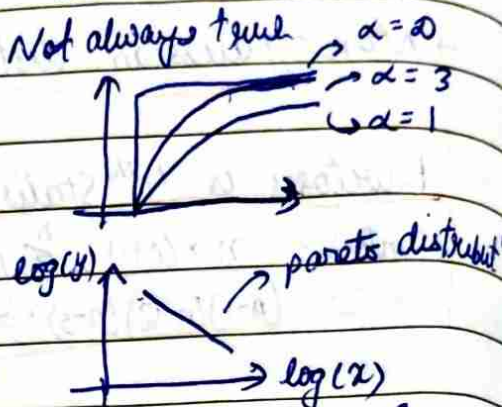 Not always true
α = ∞
α = 3
α = 1
log(y)
pareto distribut
log(x)